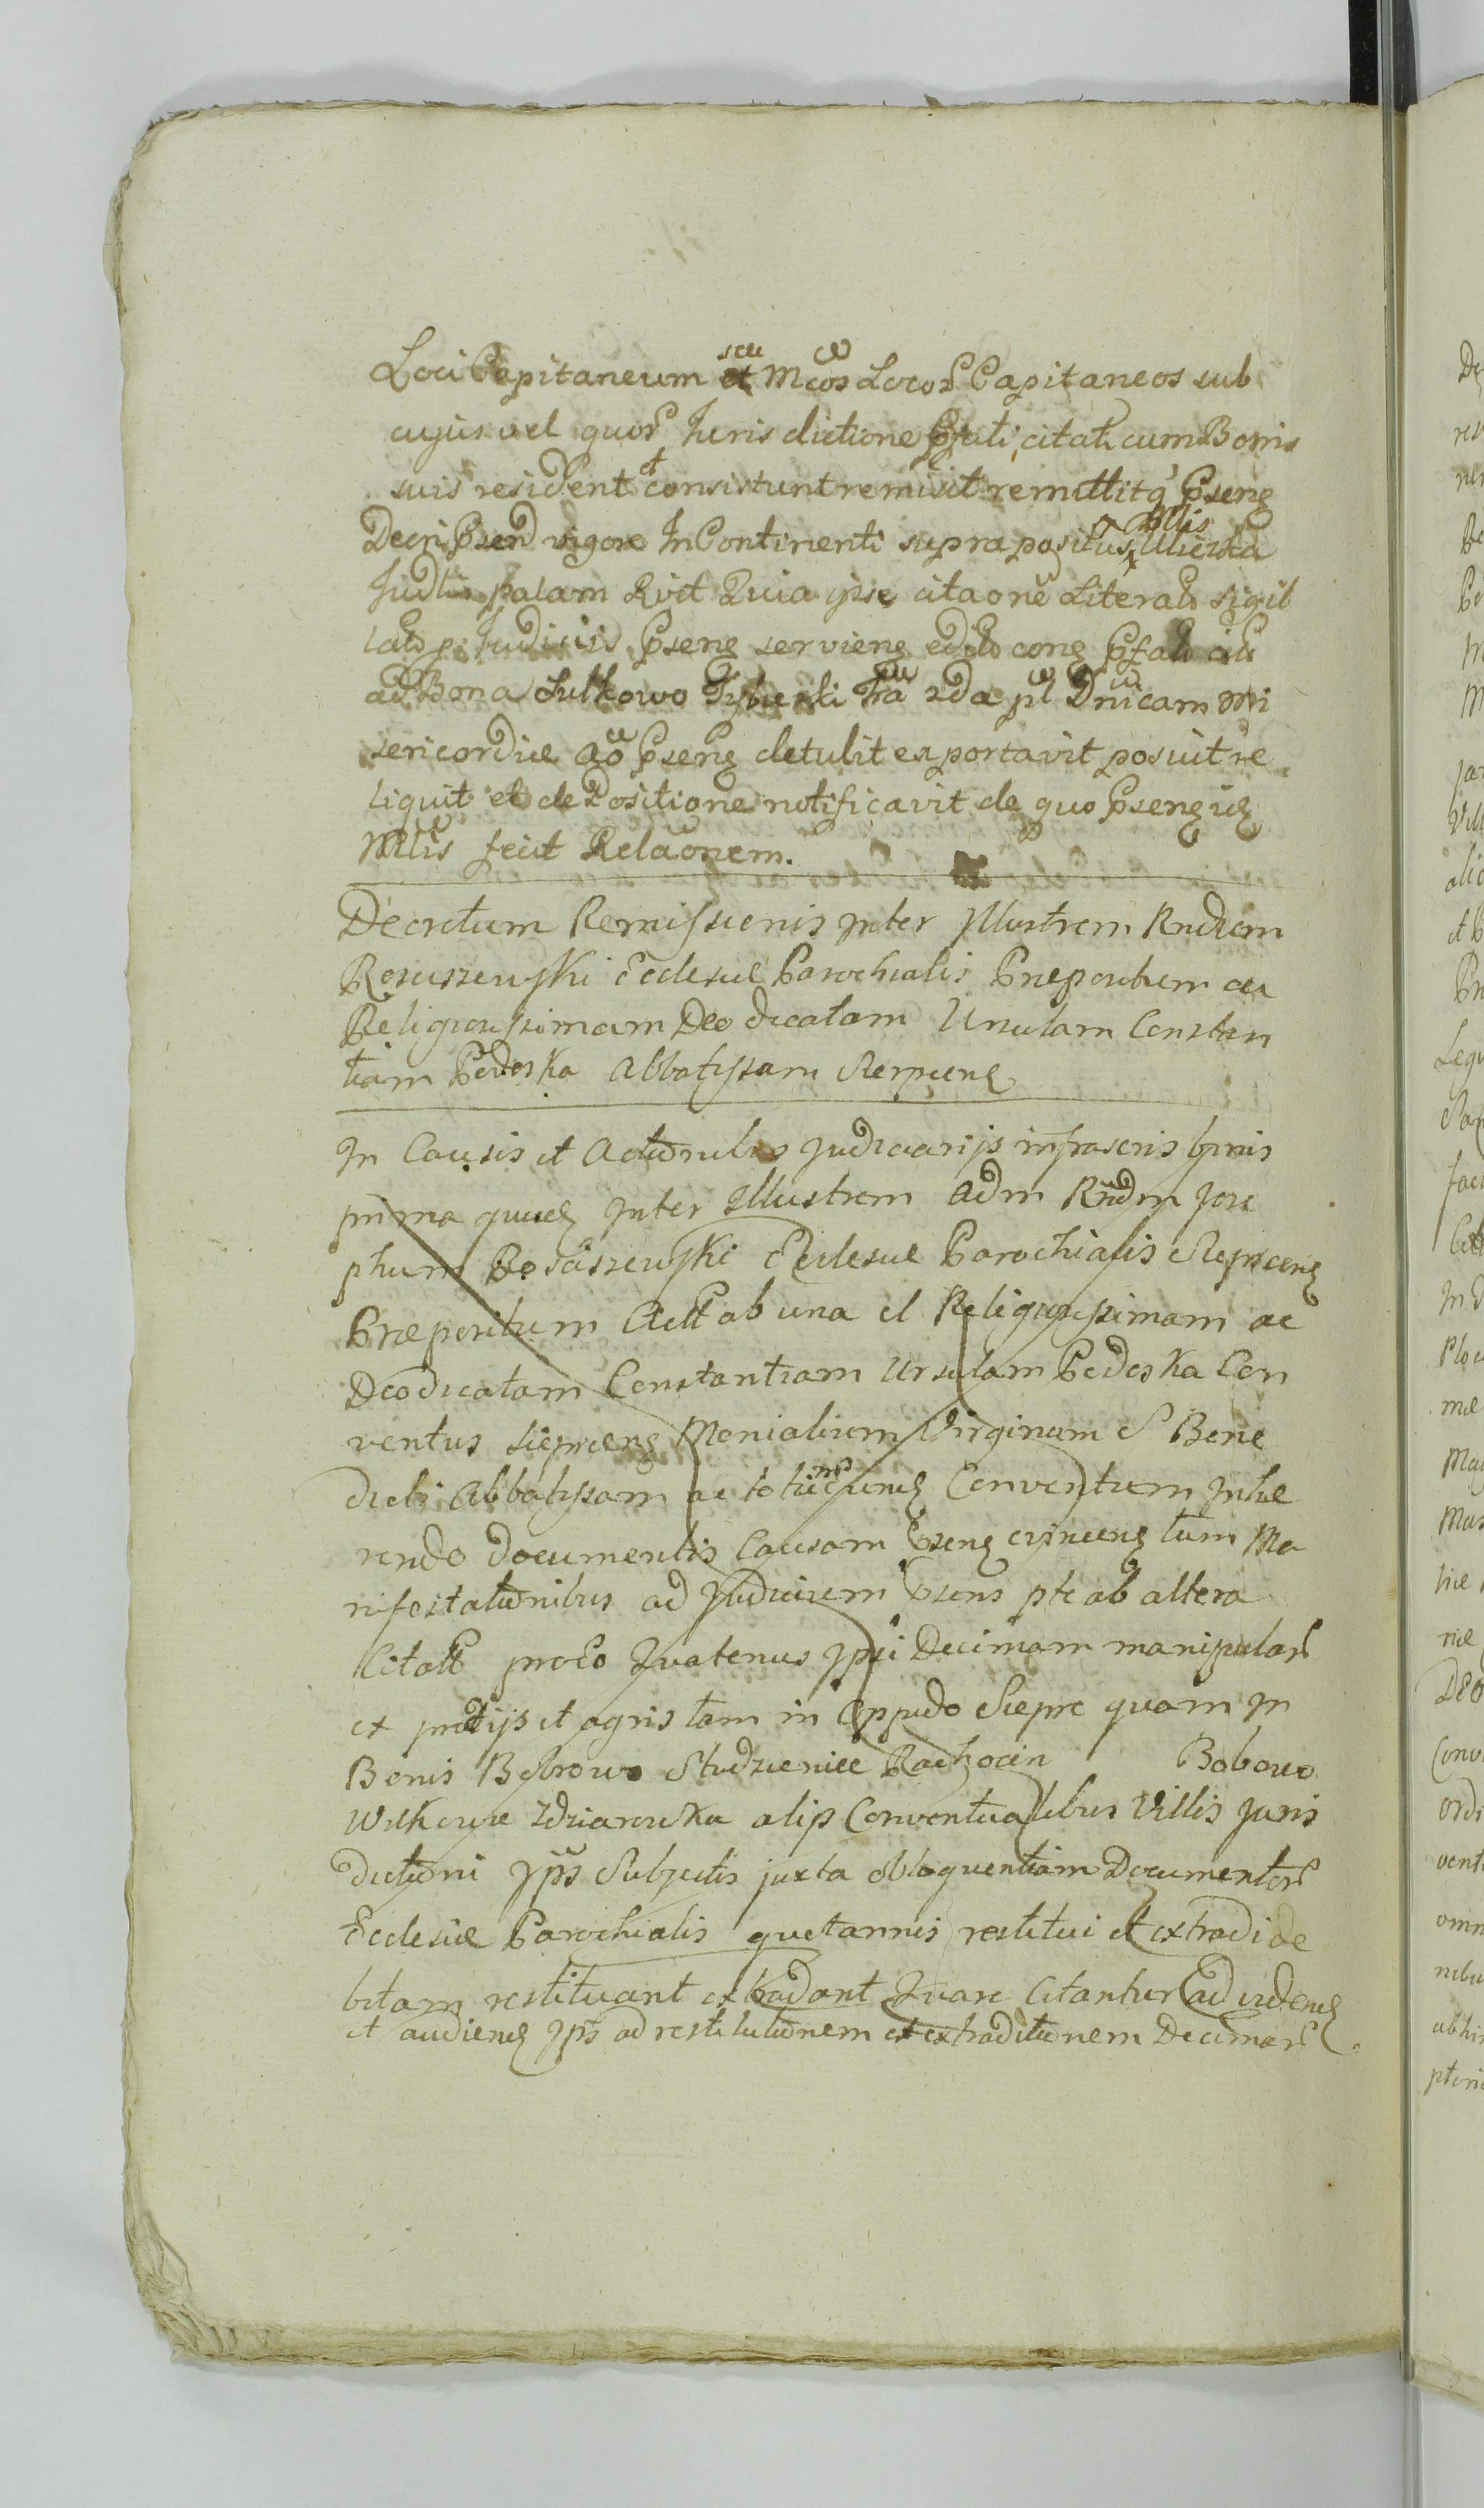 Loci Capitaneum seu Mcos Locor Capitaneos sub
cujus vel quor Jurisdictione Pfati citati cum Bonis
suis resident et consistunt remisit remittitq Psens
Decri Psen vigore In Continenti supra positus Mlis
Judlis palam Rvit Quia ipse citaone Literali sigil
lato p Judiciis Psens serviens edito cong
ad Bona Sutkowo fra 2da pt Dnicam Mi
sericordiæ Ao Psens detulit exportavit posuit re
liquit et de Positione notificavit de quo Psens
Mlis fecit Relaonem.
Decretum Remissionis Inter Illustrem Rndum
Rosciszewski Ecclesiæ Parochialis Præpositum ac
Religiosissimam Deo dicatam Ursulam Constan
tiam Pedoska Abbatissam Sierpcens
In Causis et Actionibus Judiciarijs infrascris binis
prima quidem Inter Illustrem Adm Rndm Jose
phum Rosciszewski Ecclesiæ Parochialis Sierpcens
Præpositum Act ab una et Religiosissimam ac
Deodicatam Constantiam Ursulam Pedoska Con
ventus Sierpcens Monialium Virginum S Bene
dicti Abbatissam ac totum Conventum Inhæ
rendo Documentis Causam Psens tum Ma
nifestationibus ad Judicium Psens pte ab altera
Citatt proeo Quatenus Ipsi Decimam manipular
ex prædijs et agris tam in Oppido Sierpc quam In
Bonis Bobrowo Studzieniec Rachocin Bobowo
Wilkowie Zdziarowka alijs Conventualibus Villis Juris
dictioni Ipsis Subjectis juxta obloquentiam Documentor
Ecclesiæ Parochialis quotannis restitui et extradi de
bitam restituant extradant Quare Citantur ad videnD
et audienD Ipsis ad restitutionem et extraditionem Decimar